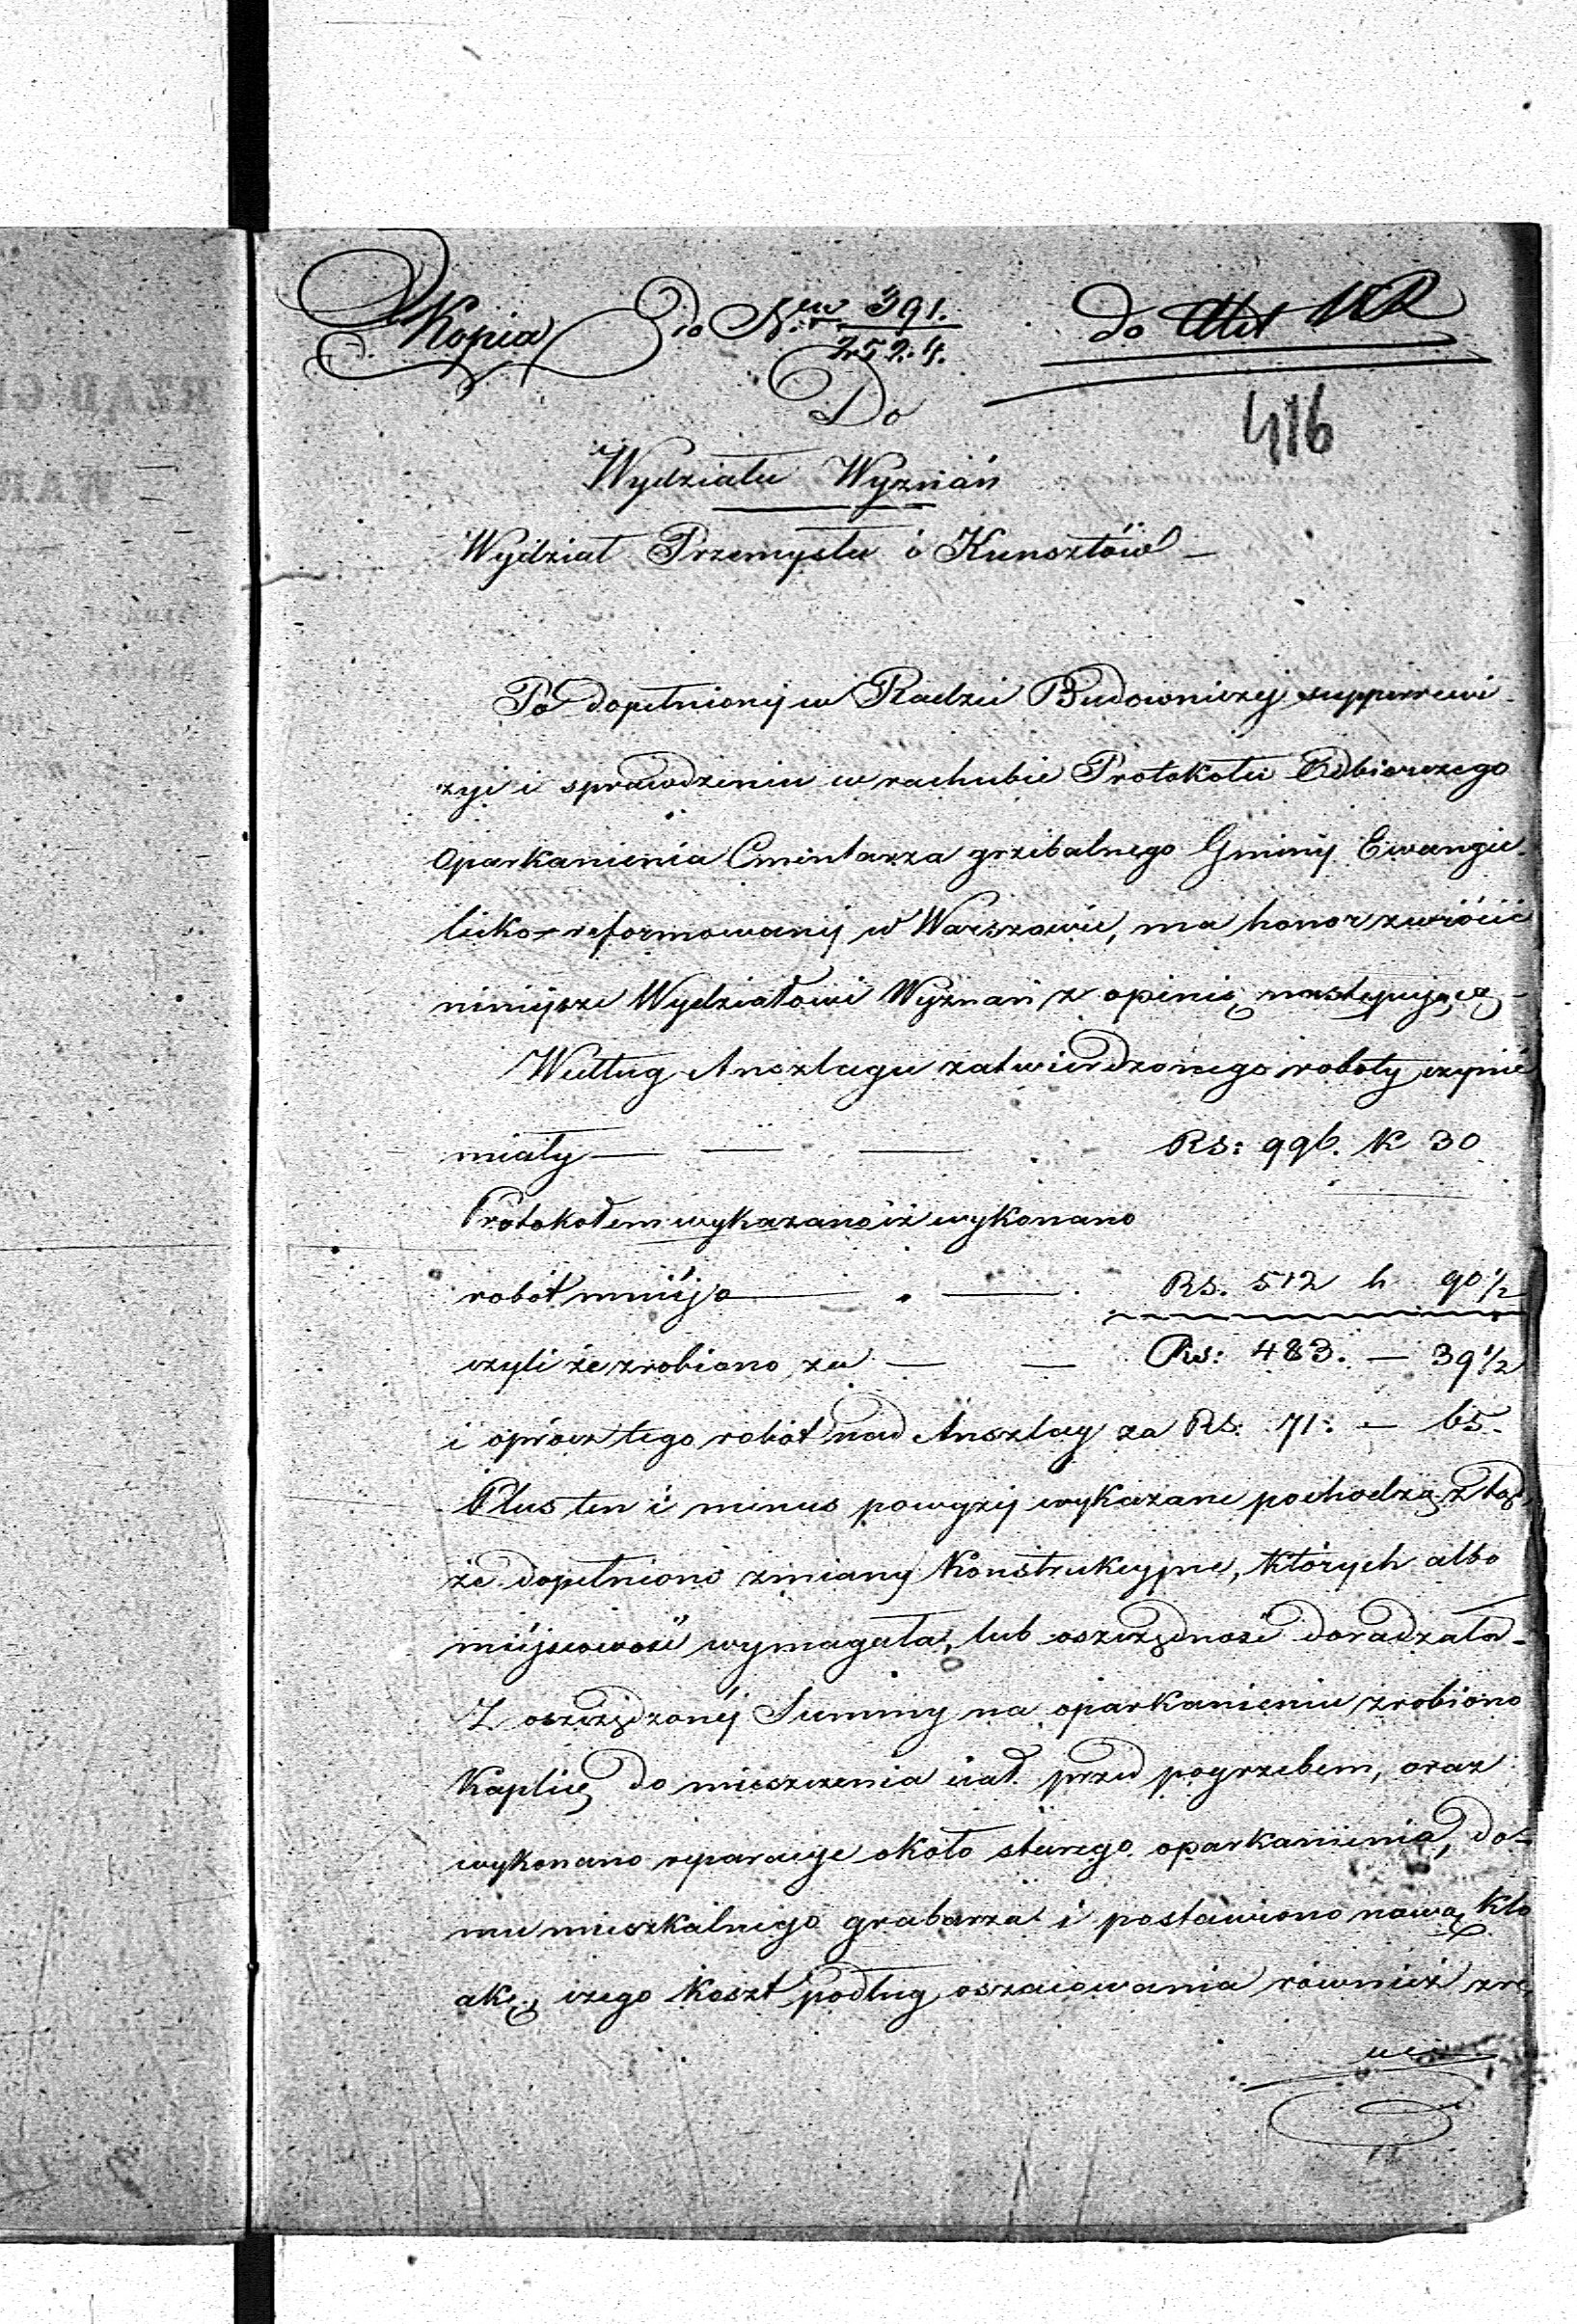 Kopia do Nru 391.
2524.
do Akt
416
Do
Wydziału Wyznań
Wydział Przemysłu i Kunsztów –
Po dopełnionej w Radzie Budowniczej superrewi-
zyi i sprawdzeniu w rachubie Protokołu Odbiorczego
Oparkanienia Cmentarza grzebalnego Gminy Ewangie-
licko-reformowanej w Warszawie, ma honor zwrócić
niniejsze Wydziałowi Wyznań z opinią następującą –
Według Anszlagu zatwierdzonego roboty czynić
miały — — — Rs: 996. k 30
Protokołem wykazano iż wykonano
robót mniej o — — Rs. 512 k 90 1/2
czyli że zrobiono za — — Rs: 483. — 39 1/2
i oprócz tego robót nad Anszlag za Rs: 71: — 65.
Plus ten i minus powyżej wykazane pochodzą ztąd,
że dopełniono zmiany Konstrukcyjne, których albo
miejscowość wymagała, lub oszczędność doradzała –
Z oszczędzonej Summy na oparkanieniu zrobiono
Kaplicę do mieszczenia ciał przed pogrzebem, oraz
wykonano reparacye około starego oparkanienia, do-
mu mieszkalnego grabarza i postawiono nową Klo
akę, czego Koszt podług oszacowania również